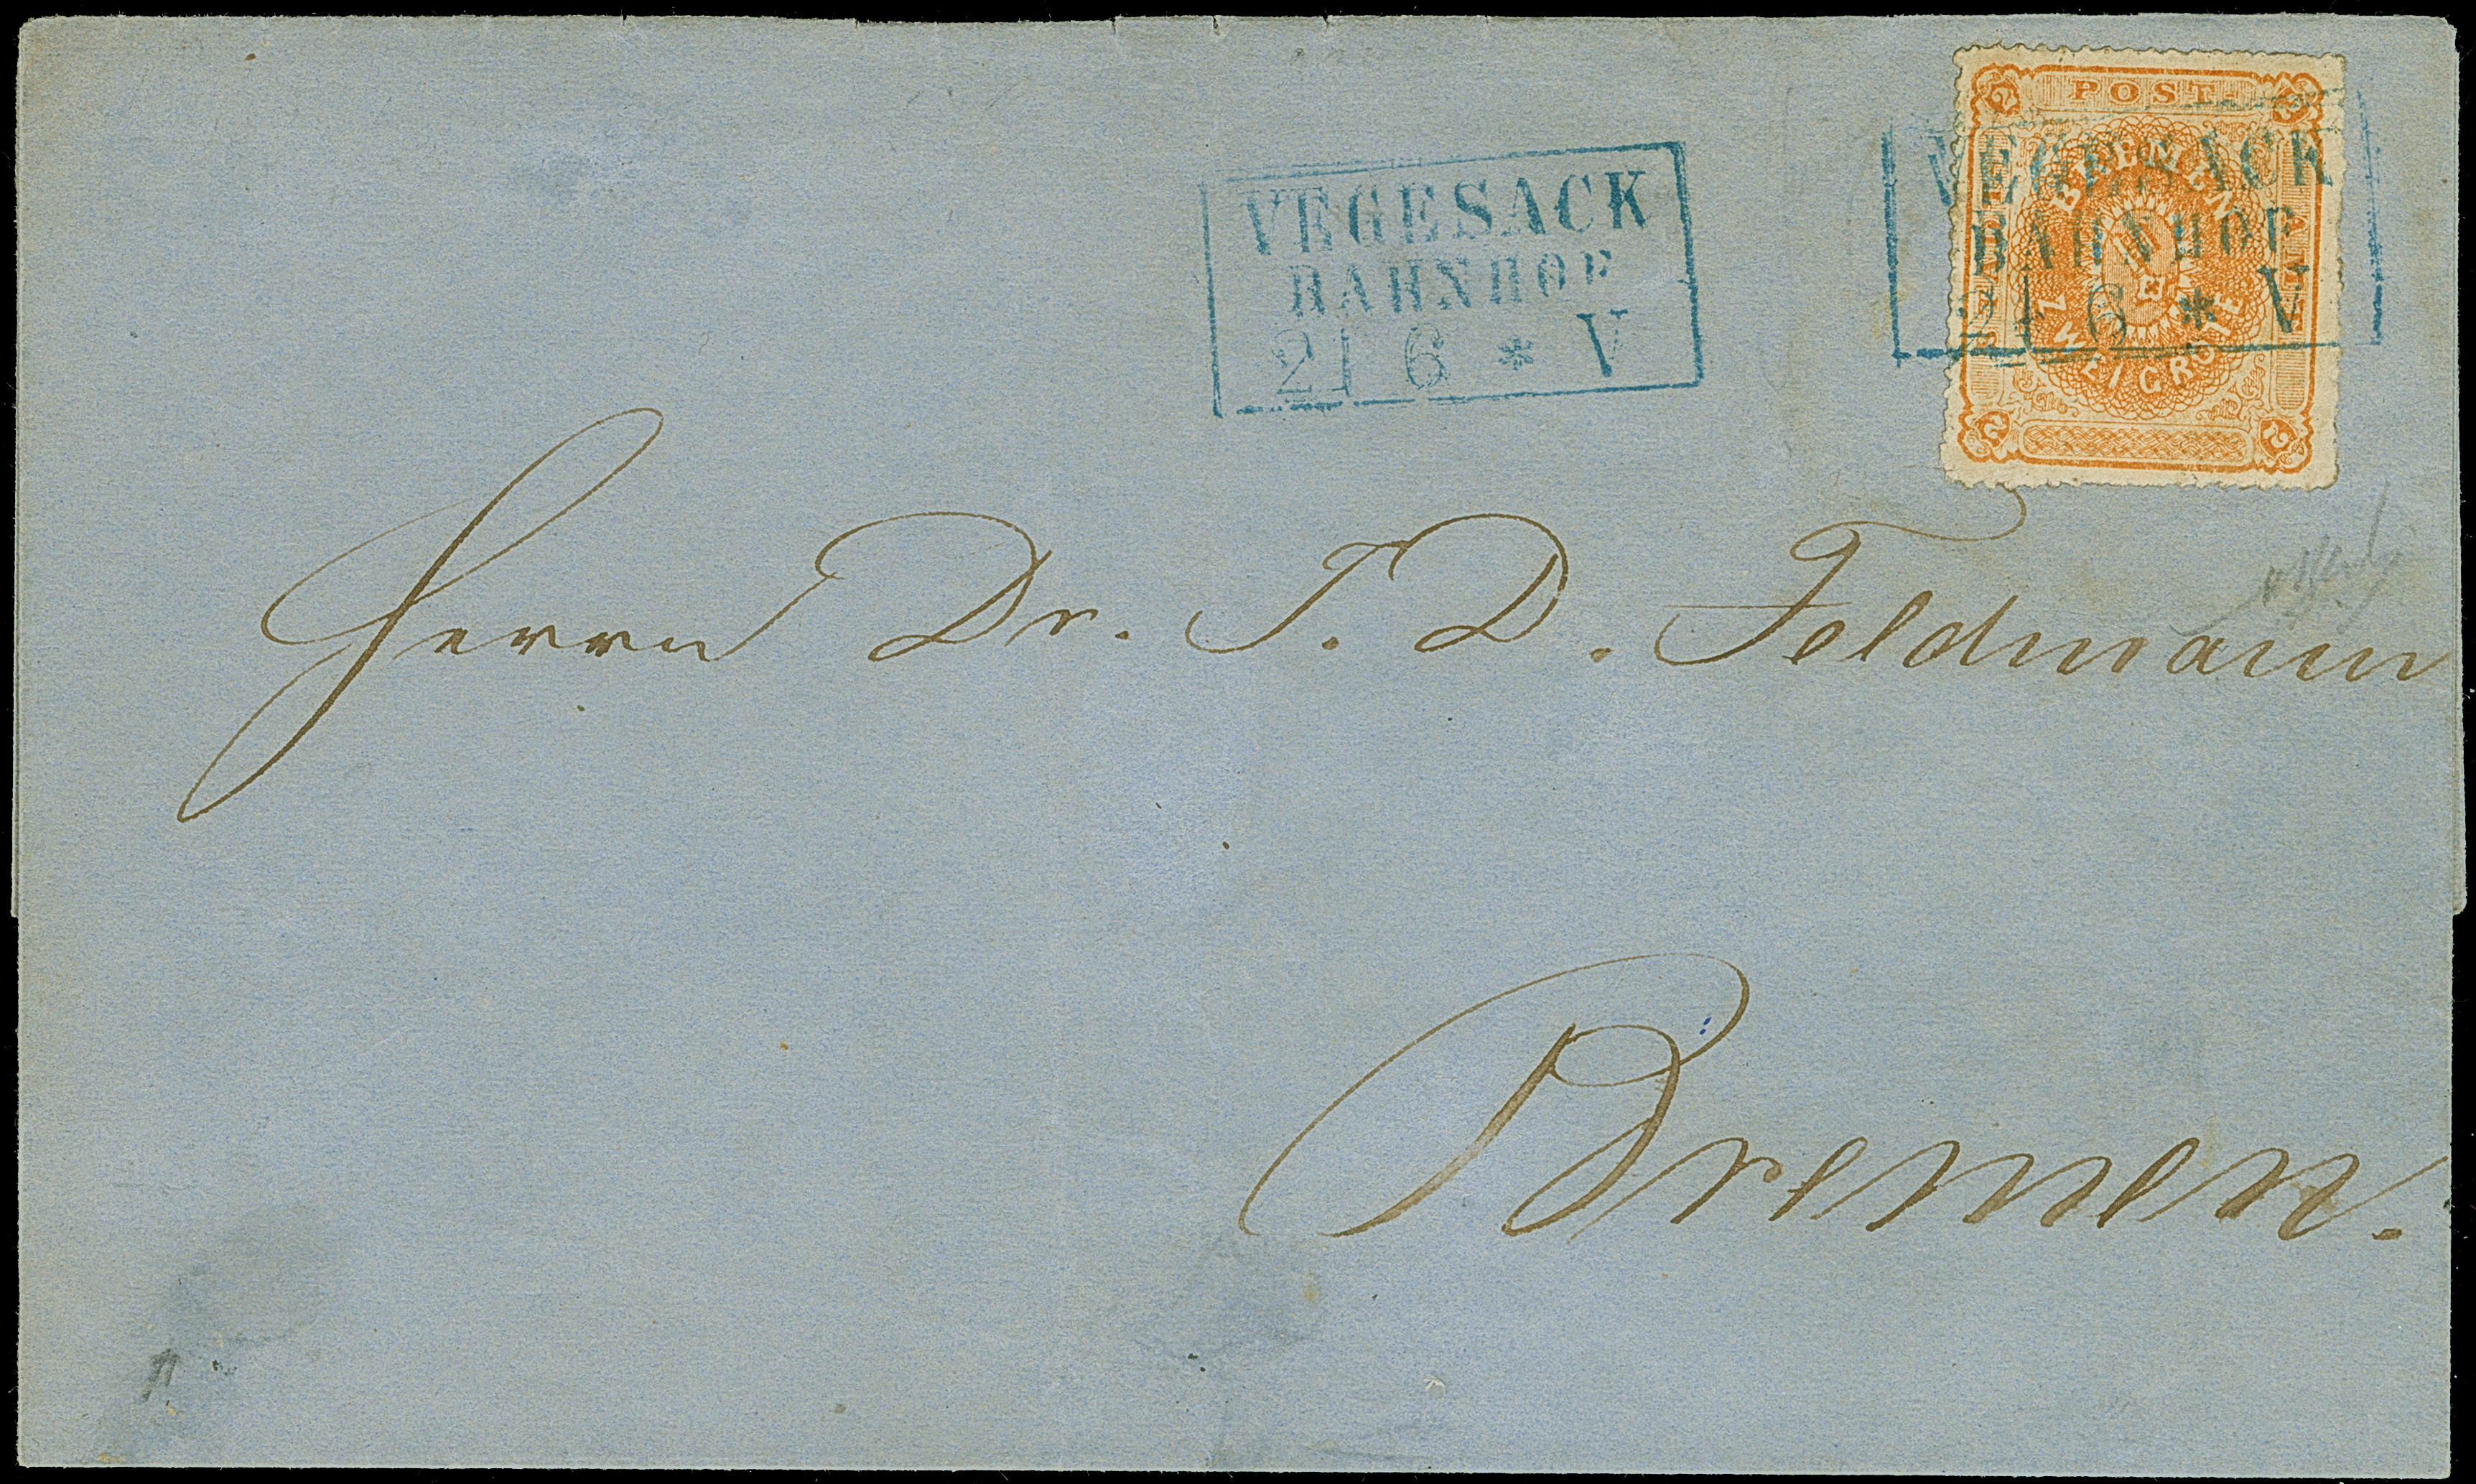 VEGESACK
BAHNHOF
21 6 * V
POST.
BREMEN
ZWEI GROTE
2
2
2
2
VEGESACK
BAHNHOF
21 6 * V
Herrn Dr. J. D. Feldmann
Bremen.